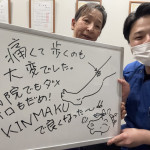 痛くて歩くのも
大変でした。
病院でもダメ
日もだめ!
KINMAKU
で良くなった〜